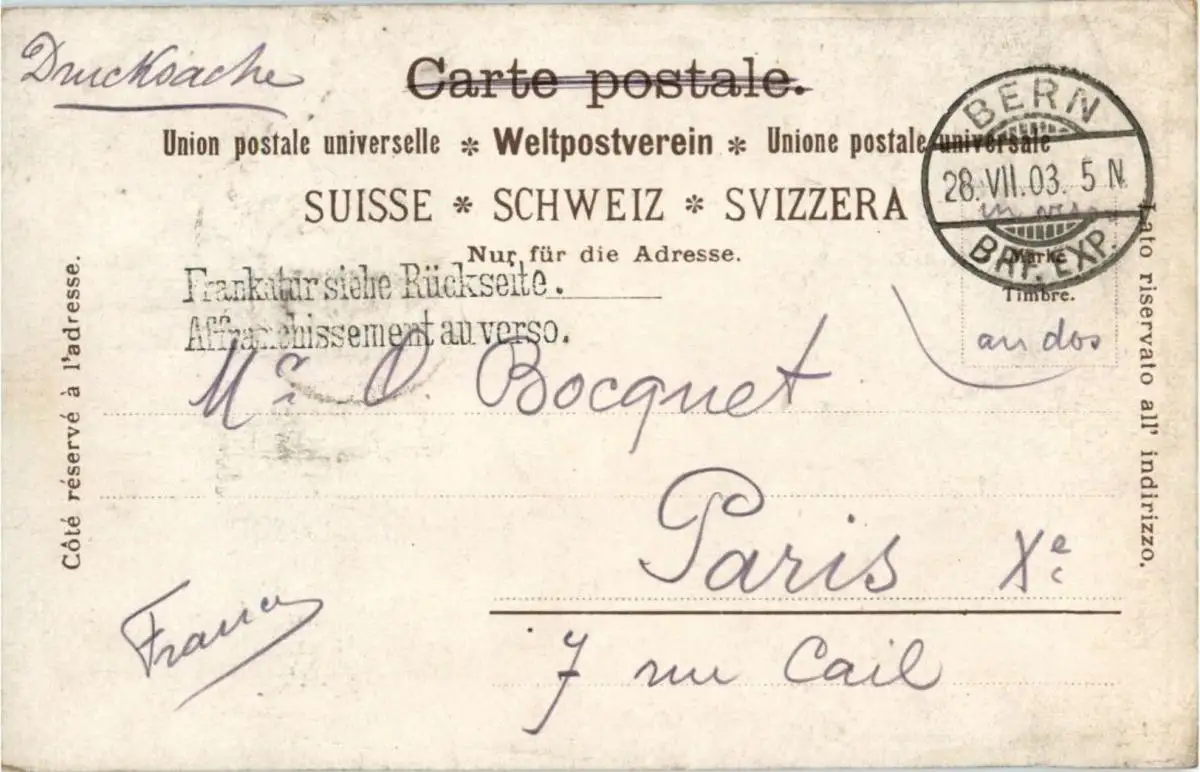 Drucksache
Carte postale.
Union postale universelle * Weltpostverein * Unione postale universale
SUISSE * SCHWEIZ * SVIZZERA
Nur für die Adresse.
BERN
28.VII.03. 5 N
BRF. EXP.
Marke
Timbre.
au dos
Frankatur siehe Rückseite.
Affranchissement au verso.
Côté réservé à l'adresse.
Lato riservato all' indirizzo.
Mr. O. Bocquet
Paris Xe
7 rue Cail
France